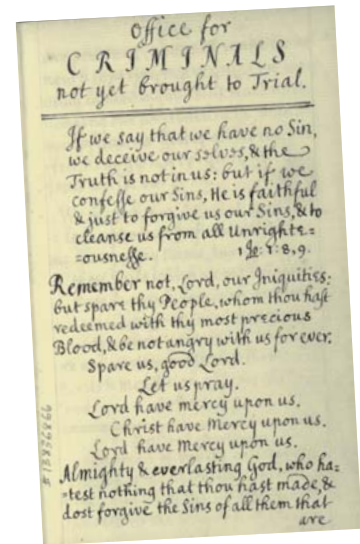 Office for
CRIMINALS
not yet brought to Trial.
If we say that we have no Sin,
we deceive our selves, & the
Truth is not in us: but if we
confesse our Sins, He is faithful
& just to forgive us our Sins, & to
cleanse us from all Unrighte=
=ousnesse. 1 Jo: 1: 8, 9.
Remember not, Lord, our Iniquities:
but spare thy People, whom thou hast
redeemed with thy most precious
Blood, & be not angry with us for ever.
Spare us, good Lord.
Let us pray.
Lord have mercy upon us.
Christ have Mercy upon us.
Lord have Mercy upon us.
Almighty & everlasting God, who ha=
=test nothing that thou hast made, &
dost forgive the Sins of all them that
are